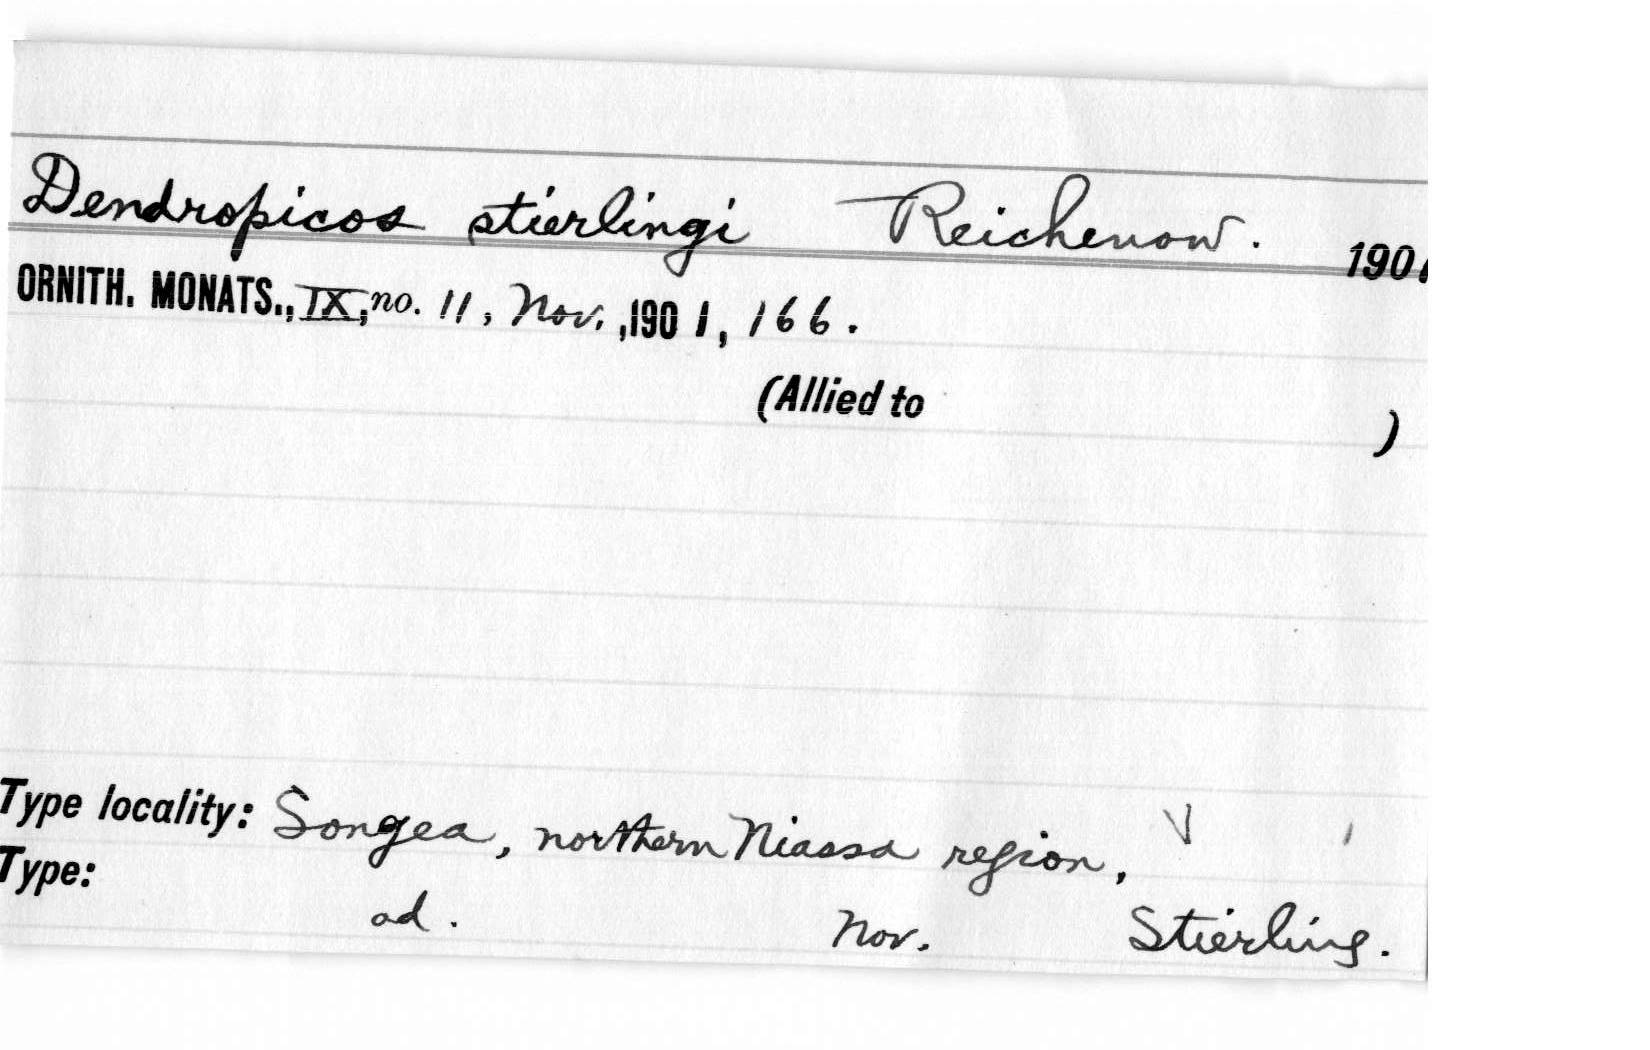 Dendropicos stierlingi Reichenow. 1901
ORNITH. MONATS., IX, no. 11, Nov., 1901, 166.
(Allied to )
Type locality: Songea, northern Niassa region,
Type:
ad. Nov. Stierling.